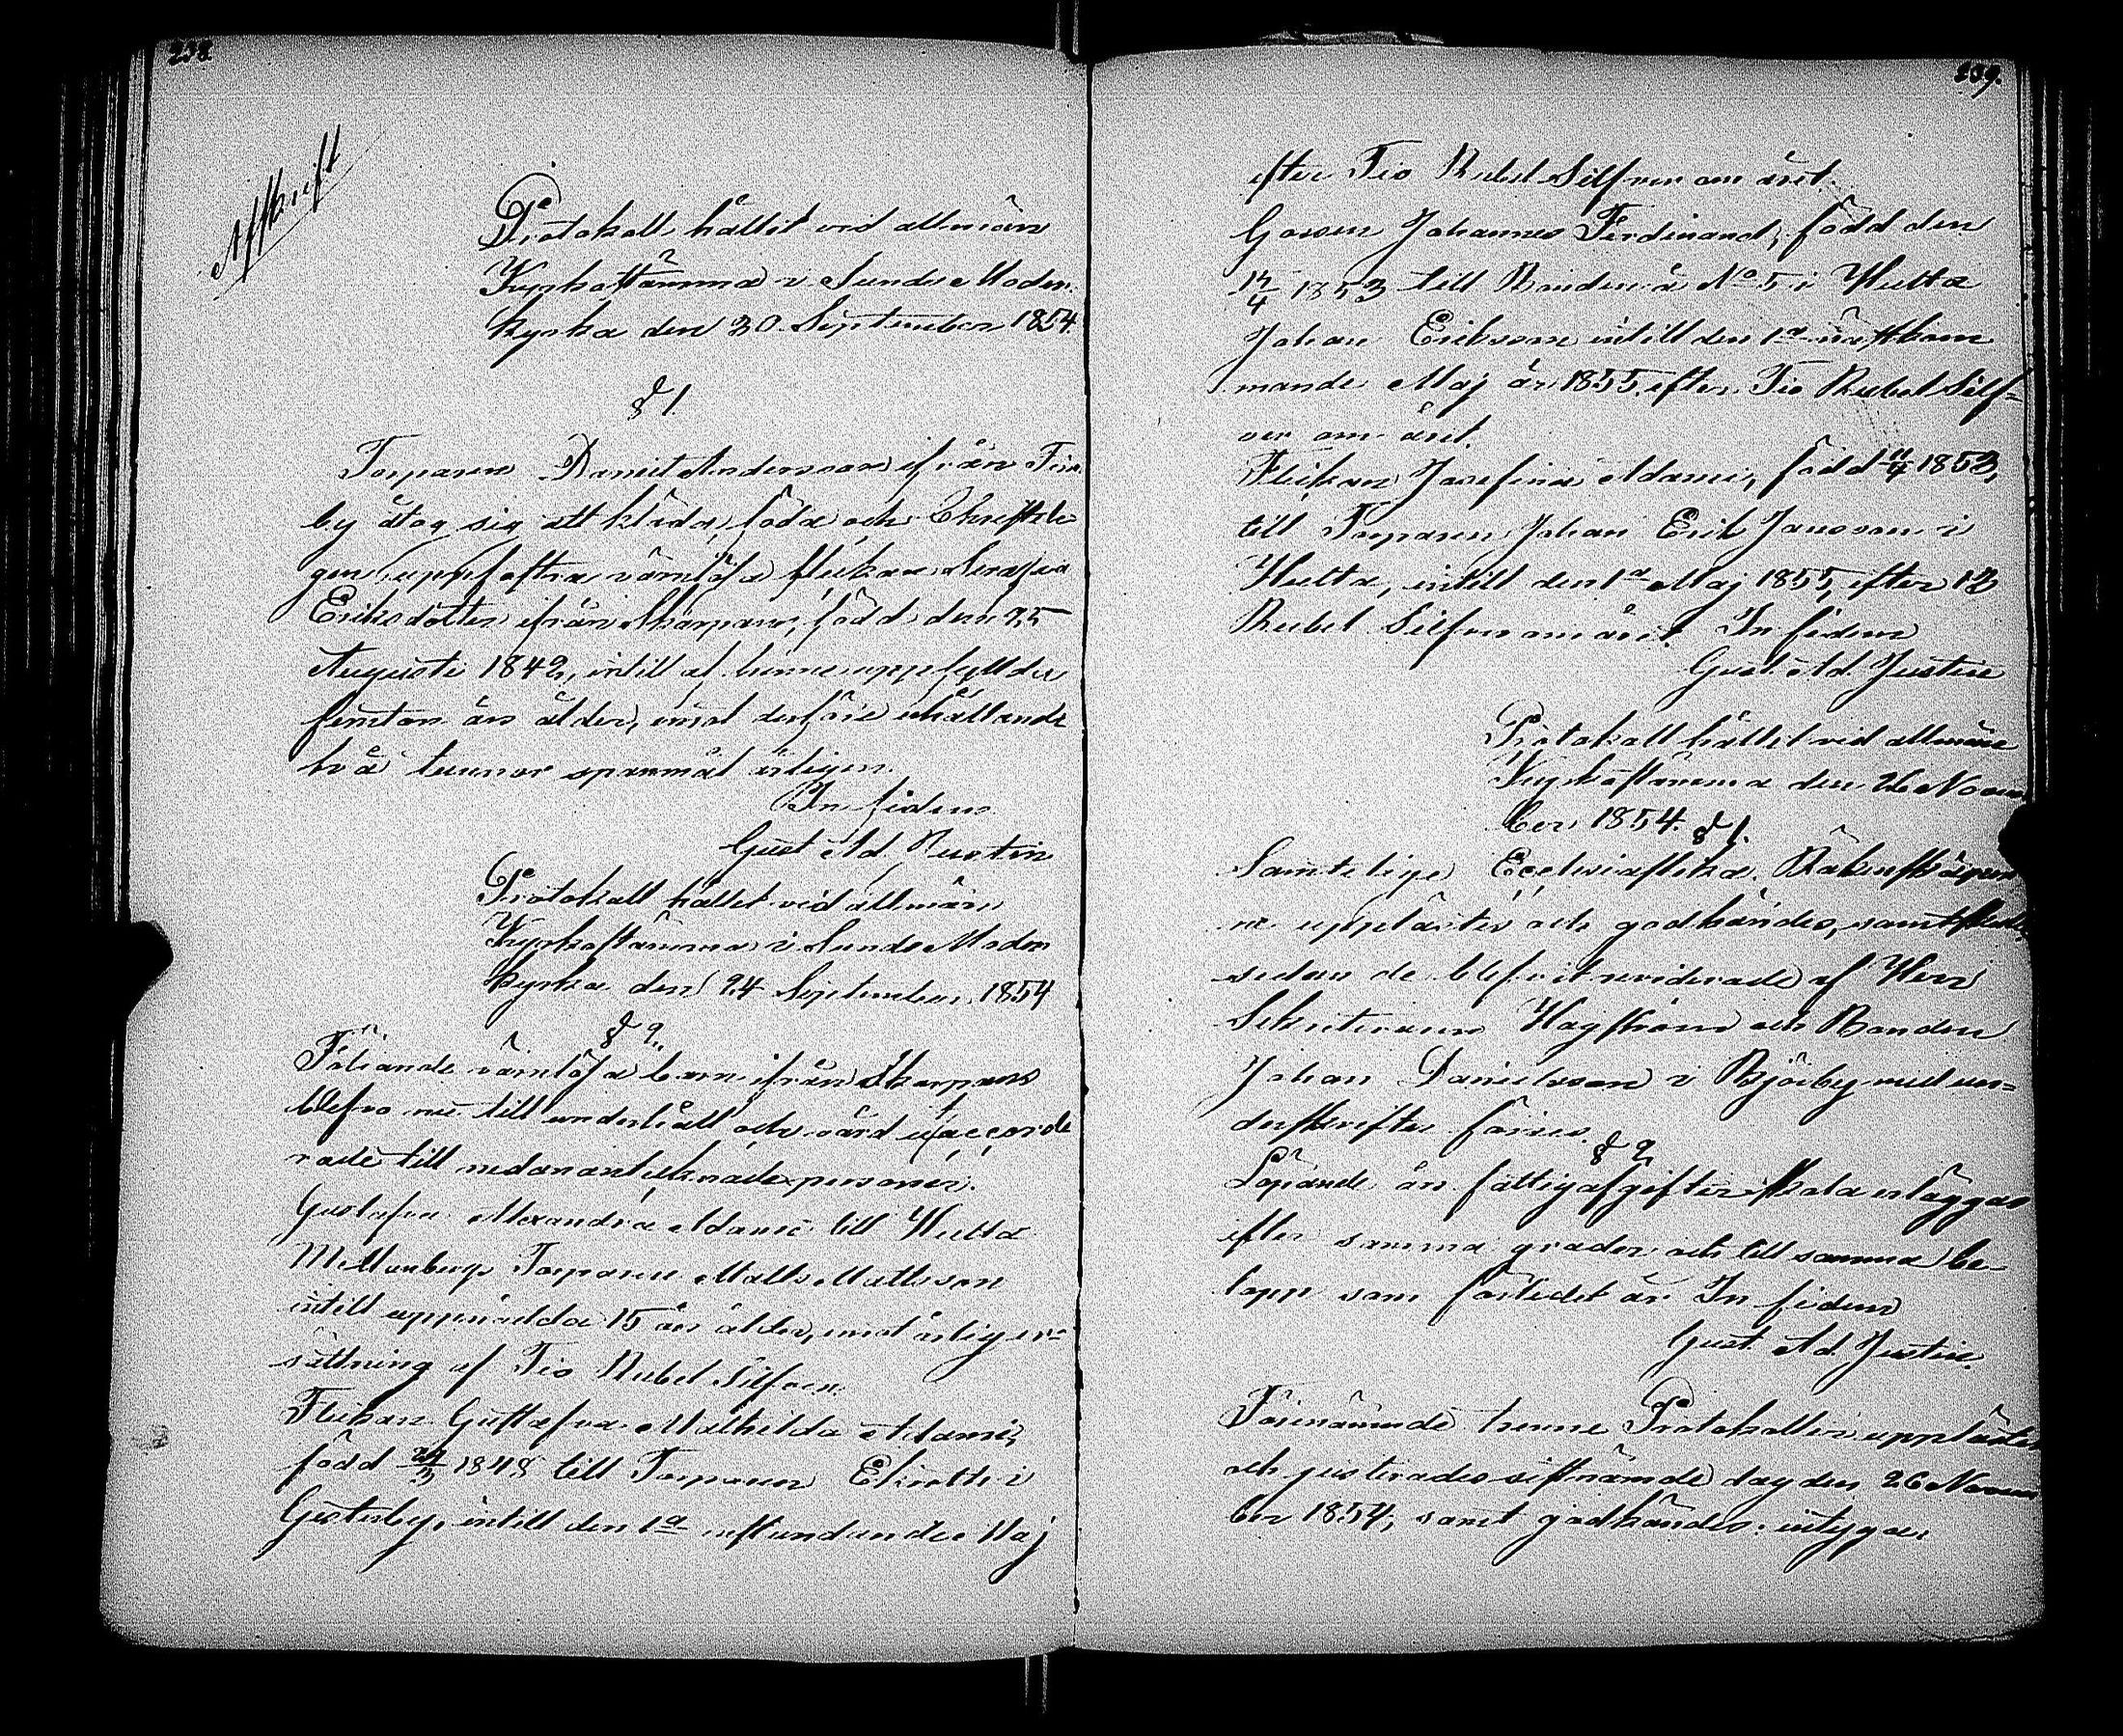 238.
Afskrift
Protokoll, hållit vid allmän
Kyrkostämma i Sunds Moder
kyrka den 30 September 1854
§ 1.
Torparen Daniel Andersson ifrån Fin
by åtog sig att kläda, föda och Christeli
gen uppfostra värnlösa flickan Serafia
Eriksdotter ifrån Skarpans, född den 25
Augusti 1842, intill af henne uppfyllda
femton års ålder, emot derföre erhållande
två tunnor spanmål årligen.
In fidem
Gust. Ad. Justin
Protokoll hållet vid allmän
Kyrkostämma i Sunds Moder
kyrka den 24 September 1854
§ 2.
Följande värnlösa barn ifrån Skarpans
blefvo nu till underhåll och vård utaccorde
rade till nedanantecknade personer.
Gustafva Alexandra Adami till Hulta
Mattsson
intill uppnådda 15 års ålder, emot årlig er-
sättning af Tio Rubel Silfver.
Flickan Gustafva Mathilda Adami,
född 1848 till Torparen i
Gesterby, intill den 1a instundande Maj
239.
efter Tio Rubel Silfver om året.
Gossen Johannes Ferdinand, född den
1853 till Bonden å No 5 i Hulta
Johan Eriksson intill den 1a nästkom
mande Maj år 1855. efter Tio Rubel Silf-
ver om året.
Flickan Josefina Adami, född 1853,
till Torparen Johan Erik Jansson i
Hulta, intill den 1a Maj 1855, efter 12
Rubel Silfver om året. In fidem
Gust. Ad. Justin
Protokoll hållet vid allmän
Kyrkostämma den 26 Novem
ber 1854. § 1.
Samtelige Ecclesiastika Räkenskaper
ne upplästes och godkändes,
sedan de blefvit reviderade af Herr
Sekreteraren Hagström och Bonden
Johan Danielsson i Björby med un-
derskrifter försed.
§ 2
Löpande års fattigafgifter skola erläggas
efter samma grader och till samma be-
lopp som förledet år In fidem
Gust. Ad. Justin.
Förenämnde trenne Protokoller upplästes
och justerades sistnämde dag den 26 Novem
ber 1854, samt godkändes: intygar